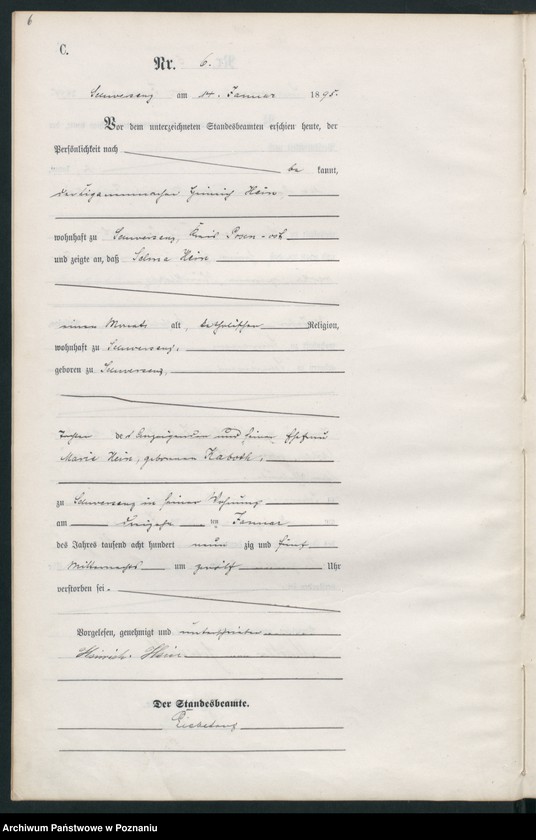 6
C.
Nr. 6.
Schwersenz am 14. Januar 1895.
Vor dem unterzeichneten Standesbeamten erschien heute, der
Persönlichkeit nach
be kannt,
der Cigarrenmacher Heinrich Hein
wohnhaft zu Schwersenz, Kreis Posen-Ost
und zeigte an, daß Selma Hein
einen Monat alt, katholischer Religion,
wohnhaft zu Schwersenz,
geboren zu Schwersenz,
Tochter des Anzeigenden und seiner Ehefrau
Marie Hein, geborenen Kaboth,
zu Schwersenz in seiner Wohnung
am dreizehn ten Januar
des Jahres tausend acht hundert neun zig und fünf
Mitternachts um zwölf Uhr
verstorben sei.
Vorgelesen, genehmigt und unterschrieben
Heinrich Hein
Der Standesbeamte.
Archiwum Państwowe w Poznaniu